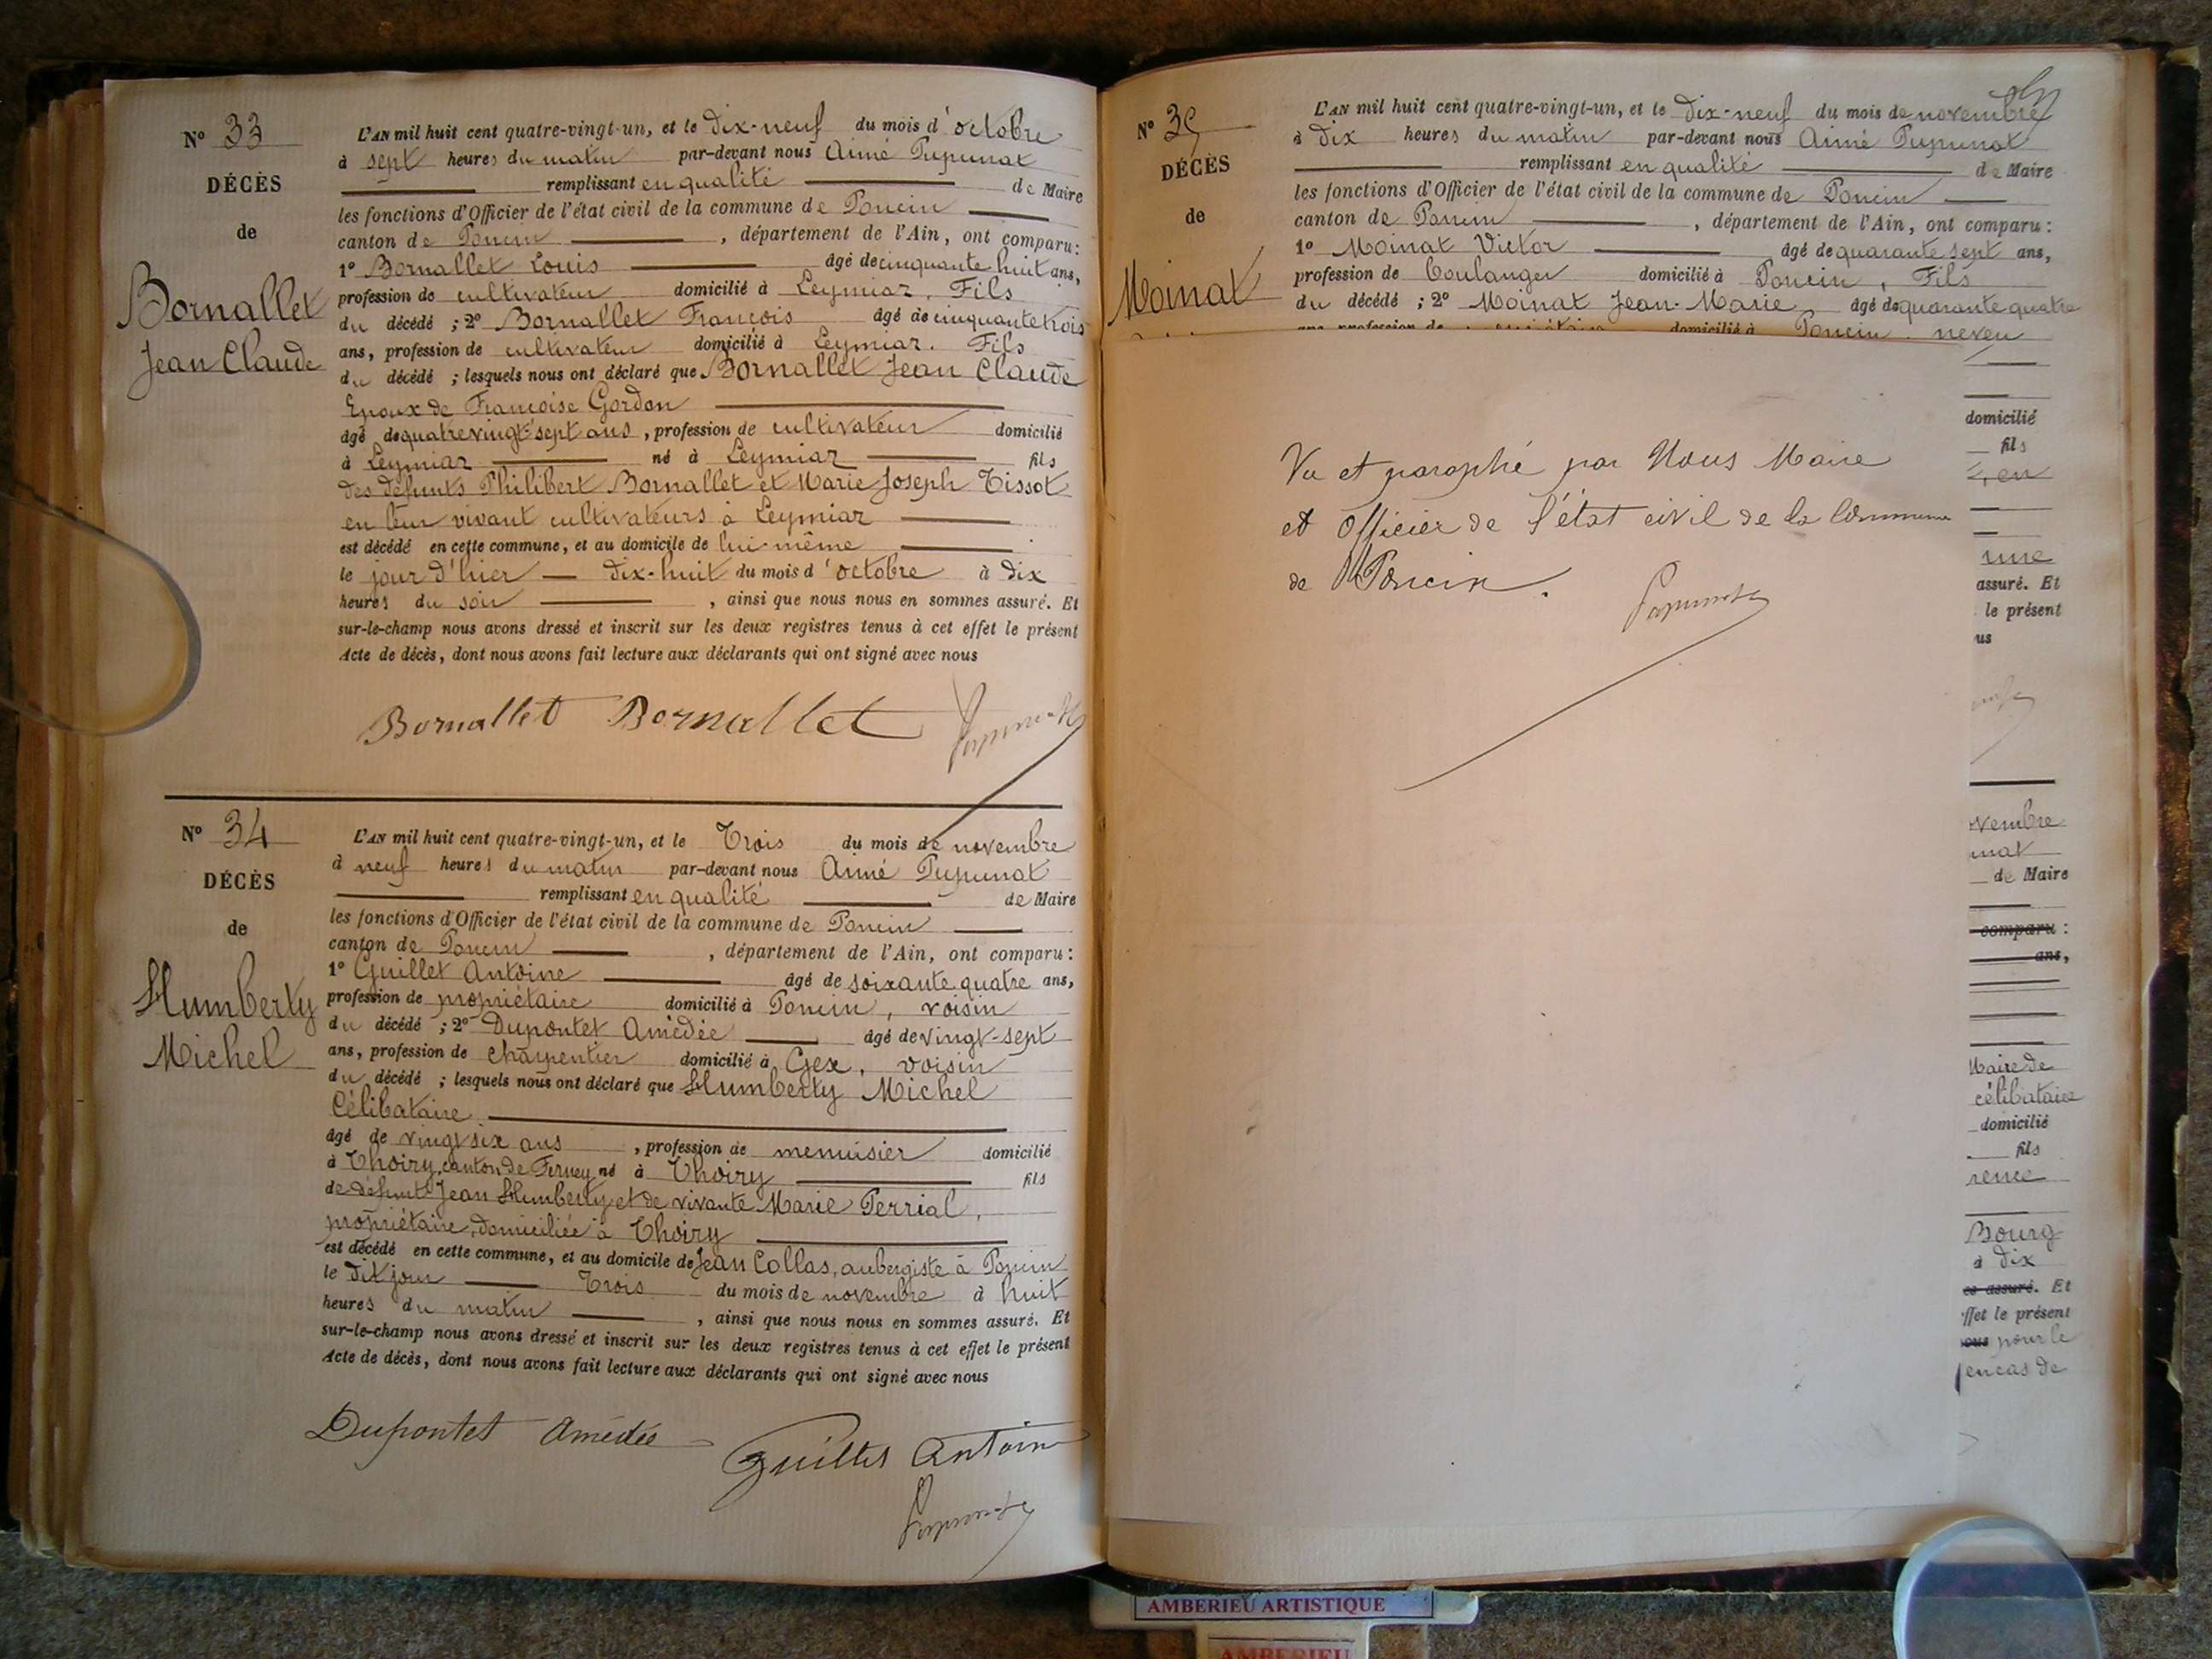 N° 33
DÉCÈS
de
Bornallet
Jean Claude
L'AN mil huit cent quatre-vingt-un, et le dix-neuf du mois d'octobre
à sept heures du matin par-devant nous Aimé Pupunat
remplissant en qualité de Maire
les fonctions d'Officier de l'état civil de la commune de Poncin
canton de Poncin, département de l'Ain, ont comparu:
1° Bornallet Louis âgé de cinquante huit ans,
profession de cultivateur domicilié à Leymiaz, Fils
du décédé ; 2° Bornallet François âgé de cinquante trois
ans, profession de cultivateur domicilié à Leymiaz. Fils
du décédé ; lesquels nous ont déclaré que Bornallet Jean Claude
Epoux de Françoise Gordon
âgé de quatre vingt sept ans, profession de cultivateur domicilié
à Leymiaz né à Leymiaz fils
des défunts Philibert Bornallet et Marie Joseph Tissot
en leur vivant cultivateurs à Leymiaz
est décédé en cette commune, et au domicile de lui-même
le jour d'hier dix-huit du mois d'octobre à dix
heures du soir, ainsi que nous nous en sommes assuré. Et
sur-le-champ nous avons dressé et inscrit sur les deux registres tenus à cet effet le présent
Acte de décès, dont nous avons fait lecture aux déclarants qui ont signé avec nous
Bornallet Bornallet Pupunat
N° 34
DÉCÈS
de
Humberty
Michel
L'AN mil huit cent quatre-vingt-un, et le Trois du mois de novembre
à neuf heures du matin par-devant nous Aimé Pupunat
remplissant en qualité de Maire
les fonctions d'Officier de l'état civil de la commune de Poncin
canton de Poncin, département de l'Ain, ont comparu:
1° Guillet Antoine âgé de soixante quatre ans,
profession de propriétaire domicilié à Poncin, voisin
du décédé ; 2° Dupontet Amédée âgé de vingt-sept
ans, profession de charpentier domicilié à Gex, voisin
du décédé ; lesquels nous ont déclaré que Humberty Michel
Célibataire
âgé de vingt six ans, profession de menuisier domicilié
à Thoiry, canton de Ferney né à Thoiry fils
de défunt Jean Humberty et de vivante Marie Perrial,
propriétaire, domiciliée à Thoiry
est décédé en cette commune, et au domicile de Jean Collas, aubergiste à Poncin
le dit jour Trois du mois de novembre à huit
heures du matin, ainsi que nous nous en sommes assuré. Et
sur-le-champ nous avons dressé et inscrit sur les deux registres tenus à cet effet le présent
Acte de décès, dont nous avons fait lecture aux déclarants qui ont signé avec nous
Dupontet Amédée Guillet Antoine
Pupunat
N° 35
DÉCÈS
de
Moinat
L'AN mil huit cent quatre-vingt-un, et le dix-neuf du mois de novembre
à dix heures du matin par-devant nous Aimé Pupunat
remplissant en qualité de Maire
les fonctions d'Officier de l'état civil de la commune de Poncin
canton de Poncin, département de l'Ain, ont comparu:
1° Moinat Victor âgé de quarante sept ans,
profession de boulanger domicilié à Poncin, Fils
du décédé ; 2° Moinat Jean-Marie âgé de quarante quatre
ans profession de domicilié à Poncin. neveu
Vu et paraphé par Nous Maire
et Officier de l'état civil de la Commune
de Poncin.
Pupunat
domicilié
fils
en
une
assuré. Et
le présent
us
vembre
nat
de Maire
comparu :
ans,
Maire de
célibataire
domicilié
fils
rence
Bourg
à dix
es assuré. Et
ffet le présent
ous pour le
en cas de
AMBERIEU ARTISTIQUE
AMBERIEU